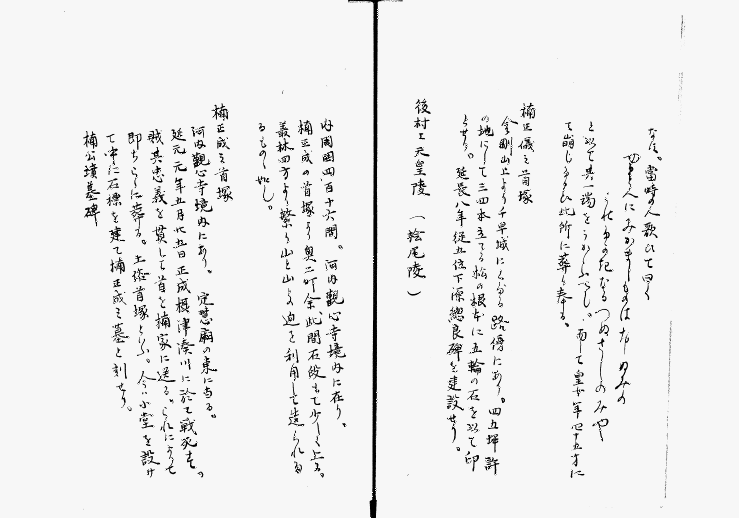 なほ。當時の人歌ひて曰く
と以て其一端をうかゞふべし。而して皇女年四十五才に
て崩じ給ひ此所に葬り奉る。
楠正儀之首塚
金剛山上より千早城に下る路傍にあり。四五坪許
の地にして三四本立てる松の根本に五輪の石を以て印
とせり。延長八年従五位下源總良碑を建設せり。
後村上天皇陵（桧尾陵）
内周囲四百十六間。河内觀心寺境内に在り。
楠正成の首塚より奥二町余、此間石段もて少しく上る。
叢林四方より繁り山と山との迫を利用して造られたる
るものゝ如し。
楠正成之首塚
河内觀心寺境内にあり。定慧廟の東に当る。
延元元年五月廿五日正成摂津湊川に於て戰死す。
賊其忠義を貫して首を楠家に送る。これによつて
即ちこゝに葬る。土俗首塚といふ。今小堂を設け
て中に石標を建て楠正成之墓と刻せり。
楠公墳墓碑